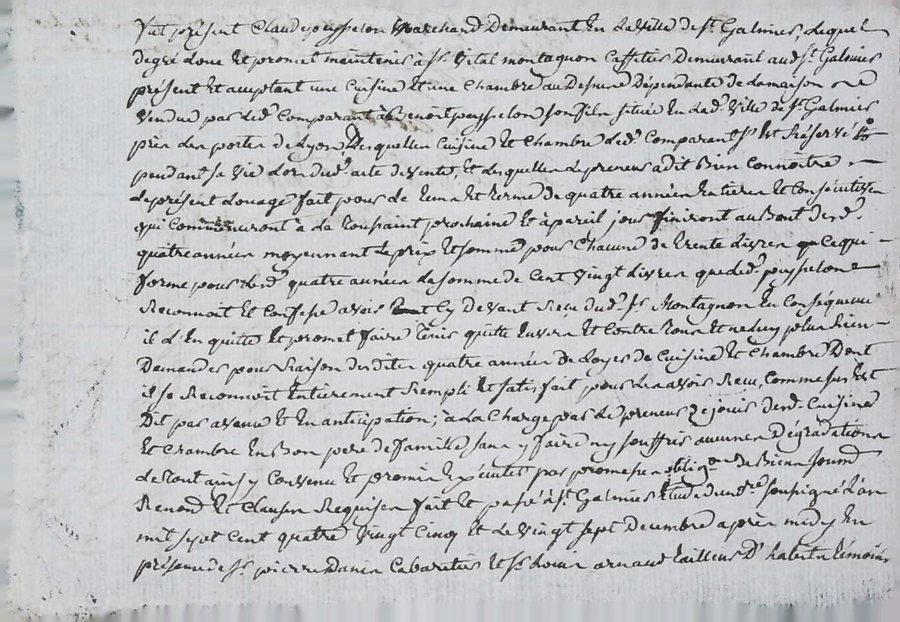 fut présent Claude peysselon Marchand Demeurant En La ville de St. Galmier, Lequel
degré Loue Et promet maintenir à Sr. Vital montagnon Caffetier Demeurant aud. St. Galmier
présent Et acceptant une Cuisine Et une Chambre au Dessus Dépendante de La maison
vendue par Led. Comparant à Benoit peysselon son fils située En lad. ville de St. Galmier
près Les portes de Lyon, Lesquelles Cuisine Et Chambre Led. Comparant s'Est Réservé
pendant sa vie Lors dud. acte de vente, Et Lesquelles Le preneur a dit Bien Connoitre
Le présent Louage fait pour Le tems Et terme de quatre années Entieres Et Consécutives
qui Commenceront a La toussaint prochaine Et à pareil jour finiront au Bout desd.
quatre années moyennant Le prix Et somme pour Chacune de trente Livres Ce qui
forme pour Lesd. quatre années La somme de Cent vingt Livres que Led. peysselon
Reconnoit Et Confesse avoir Cy Devant Reçu dud. Sr. Montagnon En Conséquence
il L'En quitte Et promet faire tenir quitte Envers Et Contre tous Et ne luy plus Rien
Demander pour Raison desdites quatre années De Loyer de Cuisine Et Chambre Dont
il se Reconnoit Entierement Rempli Et satisfait pour Les avoir Reçu, Comme sus Est
Dit par avance Et En anticipation; à La Charge par Le preneur de jouir desd. Cuisine
Et Chambre En Bon pere de famille sans y faire ny souffrir aucunes Dégradations
Le tout ainsy Convenu Et promis Exécuter par promesse obligon. de Biens soumd
Renond Et Clauses Requises fait Et passé à St. Galmier Etude dudre. soussigné L'an
mil sept Cent quatre vingt Cinq Et Le vingt sept Decembre après midy En
présence de Sr. pierre Danis Cabaretier Et Sr. Louis arnaud tailleur D'habits témoins